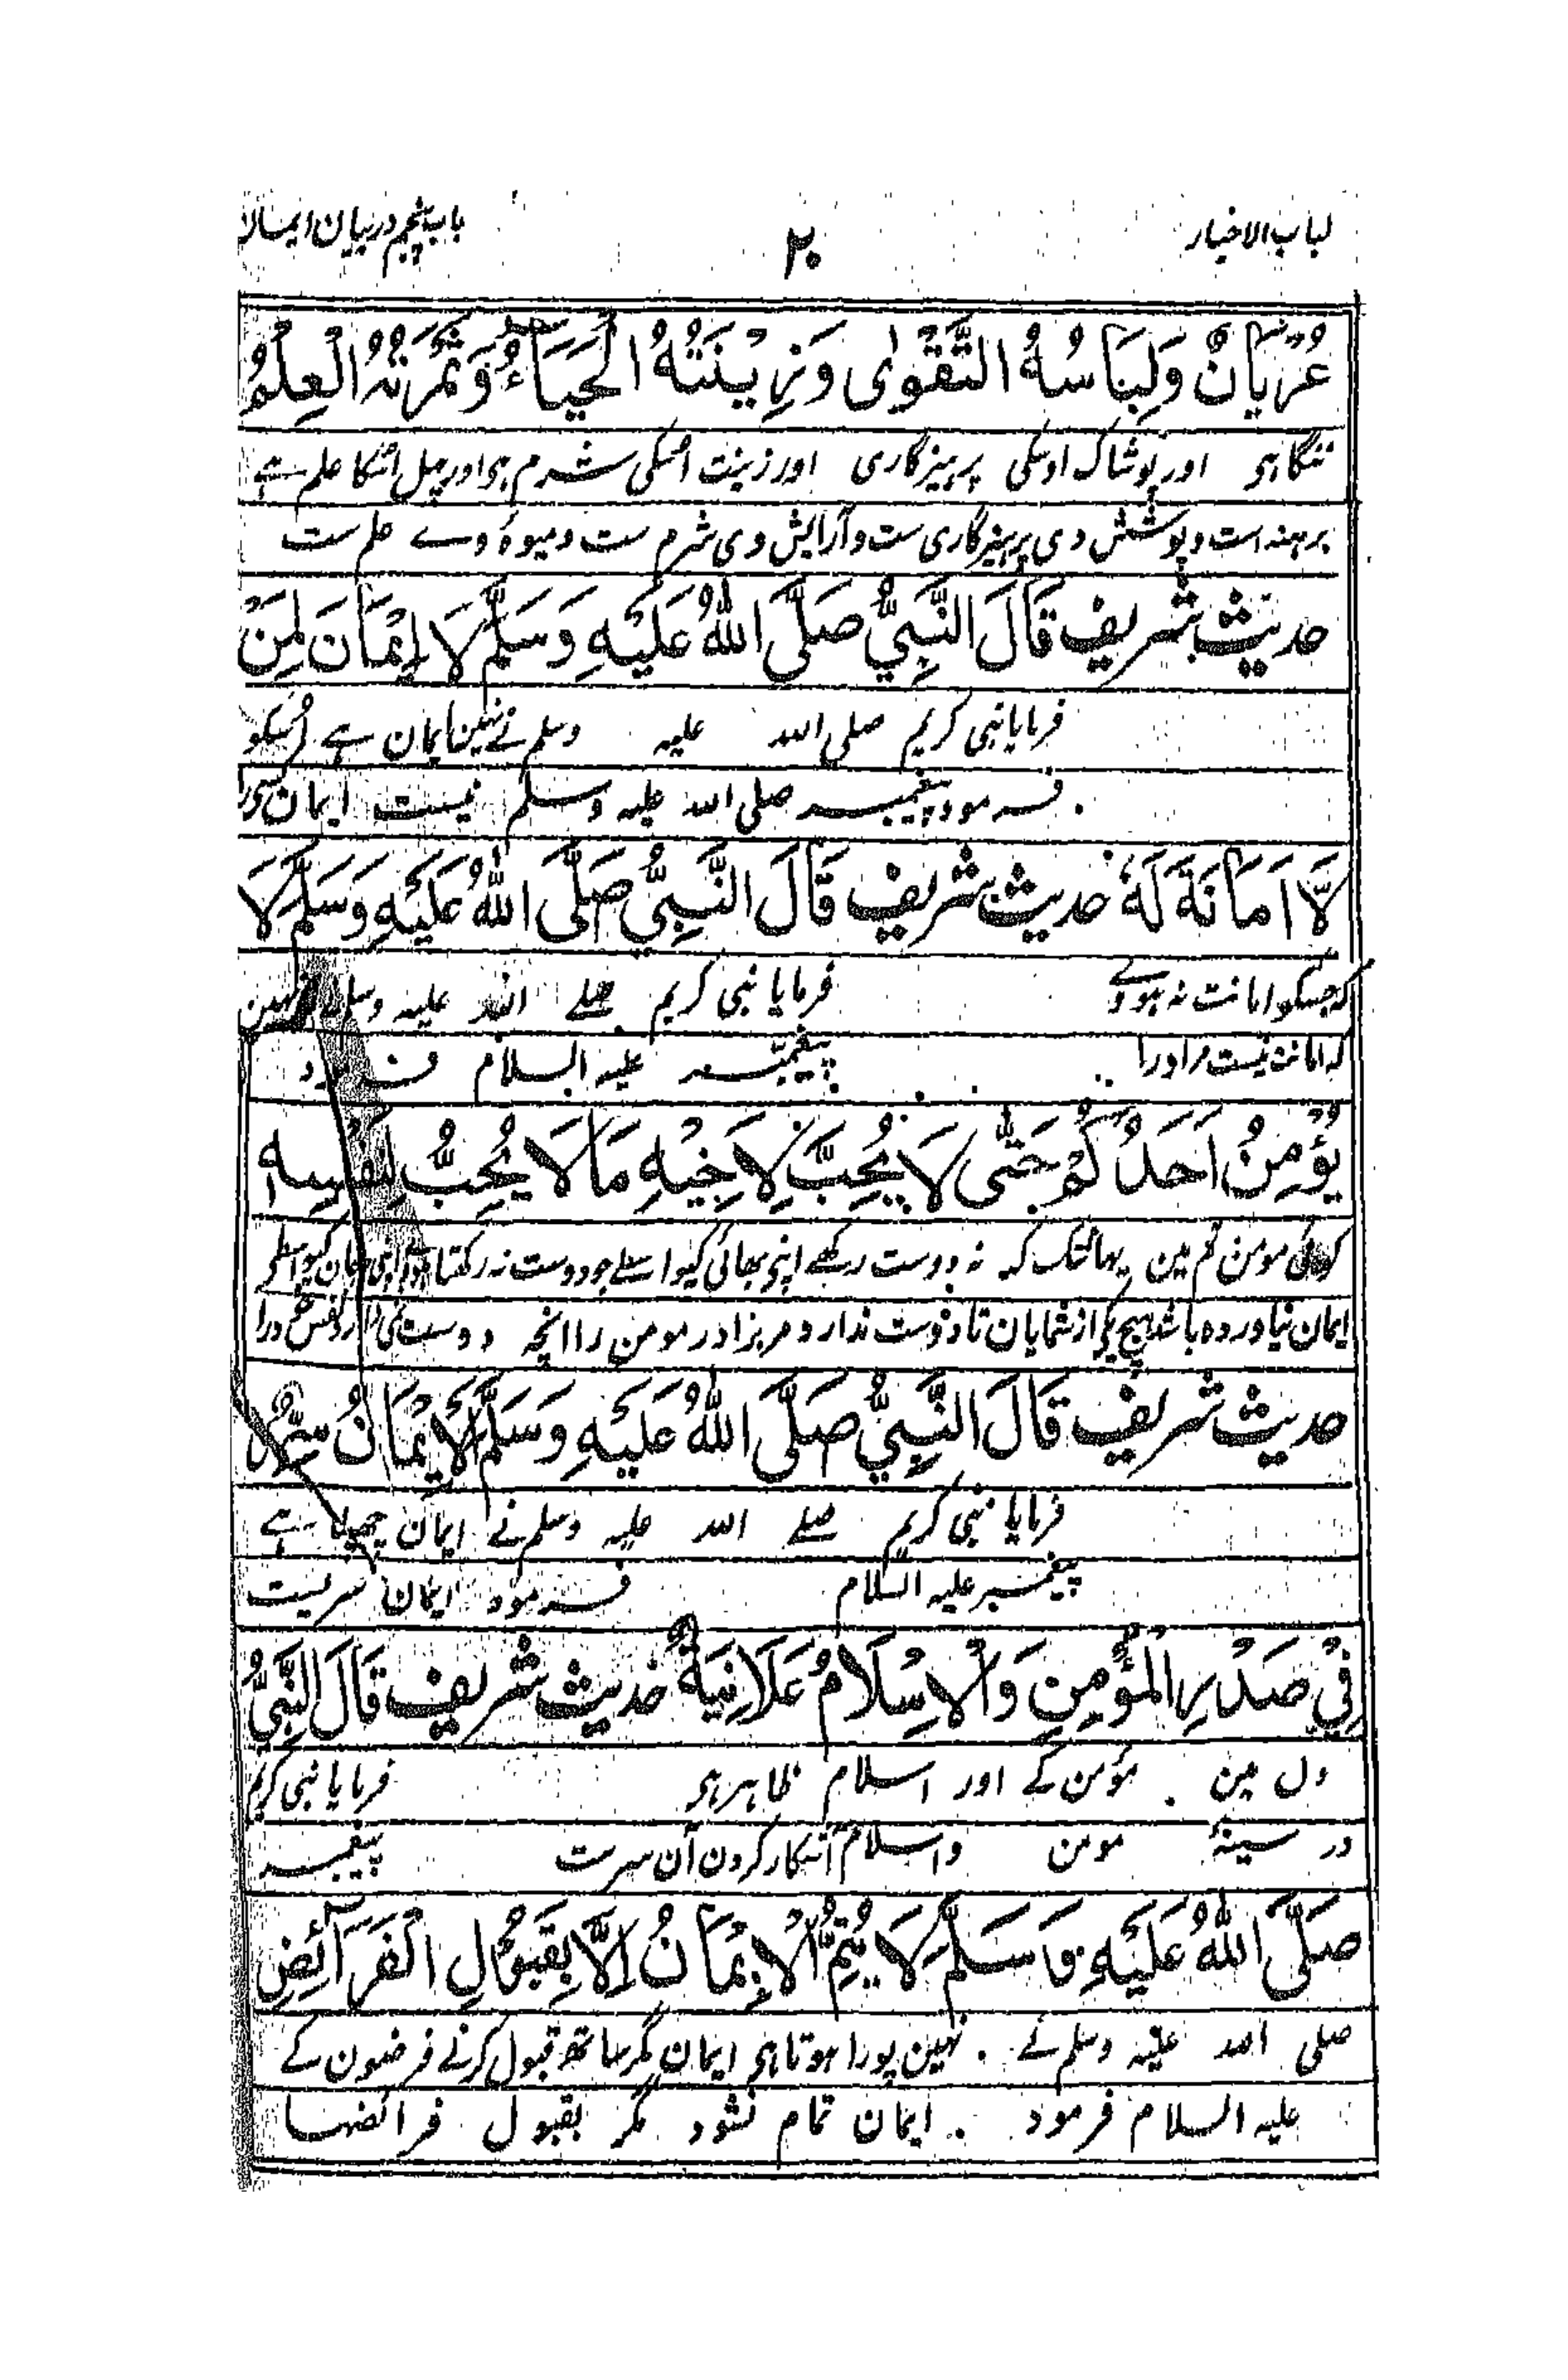 لباب الاخبار
۲۰
باب پنجم در بیان ایمان
عُرْيَانٌ وَلِبَاسُهُ التَّقْوٰى وَزِيْنَتُهُ الْحَيَآءُ وَثَمَرَتُهُ الْعِلْمُ
ننگا ہی اور پوشاک اوسکی پرہیزگاری اور زینت اسکی شرم ہی اور پھل اسکا علم ہے
برہنہ است و پوشش وی پرہیزگاری ست و آرایش وی شرم ست و میوۂ وے علم ست
حدیث شریف قَالَ النَّبِيُّ صَلَّى اللهُ عَلَيْهِ وَسَلَّمَ لَا إِيْمَانَ لِمَنْ
فرمایا نبی کریم صلی اللہ علیہ وسلم نے نہین ایمان ہے اُسکو
فرمود پیغمبر صلی اللہ علیہ وسلم نیست ایمان کسی را
لَّا اَمَانَةَ لَهٗ حدیث شریف قَالَ النَّبِيُّ صَلَّى اللهُ عَلَيْهِ وَسَلَّمَ لَا
کہ جسکو امانت نہ ہووے فرمایا نبی کریم صلے اللہ علیہ وسلم نہین
کہ امانت نیست مر اورا پیغمبر علیہ السلام فرمود
يُؤْمِنُ اَحَدُكُمْ حَتّٰى لَا يُحِبَّ لِاَخِيْهِ مَا لَا يُحِبُّ لِنَفْسِهٖ
کوئی مومن تم مین یہانتک کہ نہ دوست رکھے اپنے بھائی کیواسطے جو دوست نہ رکھتا ہو اپنی جان کیواسطے
ایمان نیاوردہ باشد ہیچ یکی از شمایان تا دوست ندارد مر برادر مومن را آنچہ دوست نمی دارد نفس خود را
حدیث شریف قَالَ النَّبِيُّ صَلَّى اللهُ عَلَيْهِ وَسَلَّمَ الْاِيْمَانُ سِرٌّ
فرمایا نبی کریم صلے اللہ علیہ وسلم نے ایمان چھپا ہے
پیغمبر علیہ السلام فرمود ایمان سریست
فِيْ صَدْرِ الْمُؤْمِنِ وَالْاِسْلَامُ عَلَانِيَةٌ حدیث شریف قَالَ النَّبِيُّ
دل مین مؤمن کے اور اسلام ظاہر ہی فرمایا نبی کریم
در سینۂ مومن و اسلام آشکار کردن آن سرست پیغمبر
صَلَّى اللهُ عَلَيْهِ وَسَلَّمَ لَا يُتِمُّ الْاِيْمَانُ اِلَّا بِقَبُوْلِ الْفَرَآئِضِ
صلی اللہ علیہ وسلم نے نہین پورا ہوتا ہی ایمان مگر ساتھ قبول کرنے فرضون کے
علیہ السلام فرمود ایمان تمام نشود مگر بقبول فرائضہا